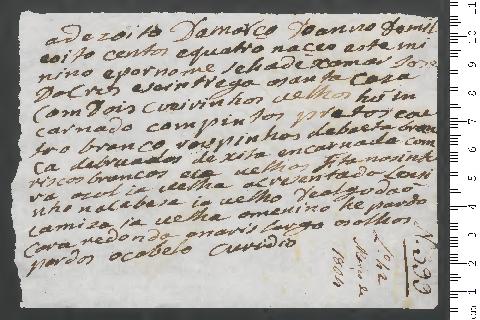 adezoito Damarco Doanno Demil
eoito centos equatro naceo este mi
nino epornome sehadexamar Joze
DaCruz eseintrega asanta Caza
Com Dois cueirinhos velhos hũ in
carnado compintos pretos eoe
tro branco roupinhos debaeta bran
ca debruados dexita encarnada com
riscos brancos eia velhos fita no sinto
ra azul ia velha acresentado Lensi
nho nacabesa ia velho dealgodaõ
camiza ia velha omenino he pardo
Cara redonda onaris largo osolhos
pardos ocabelo curidio
N. 233
a fo 42
Março de
1804